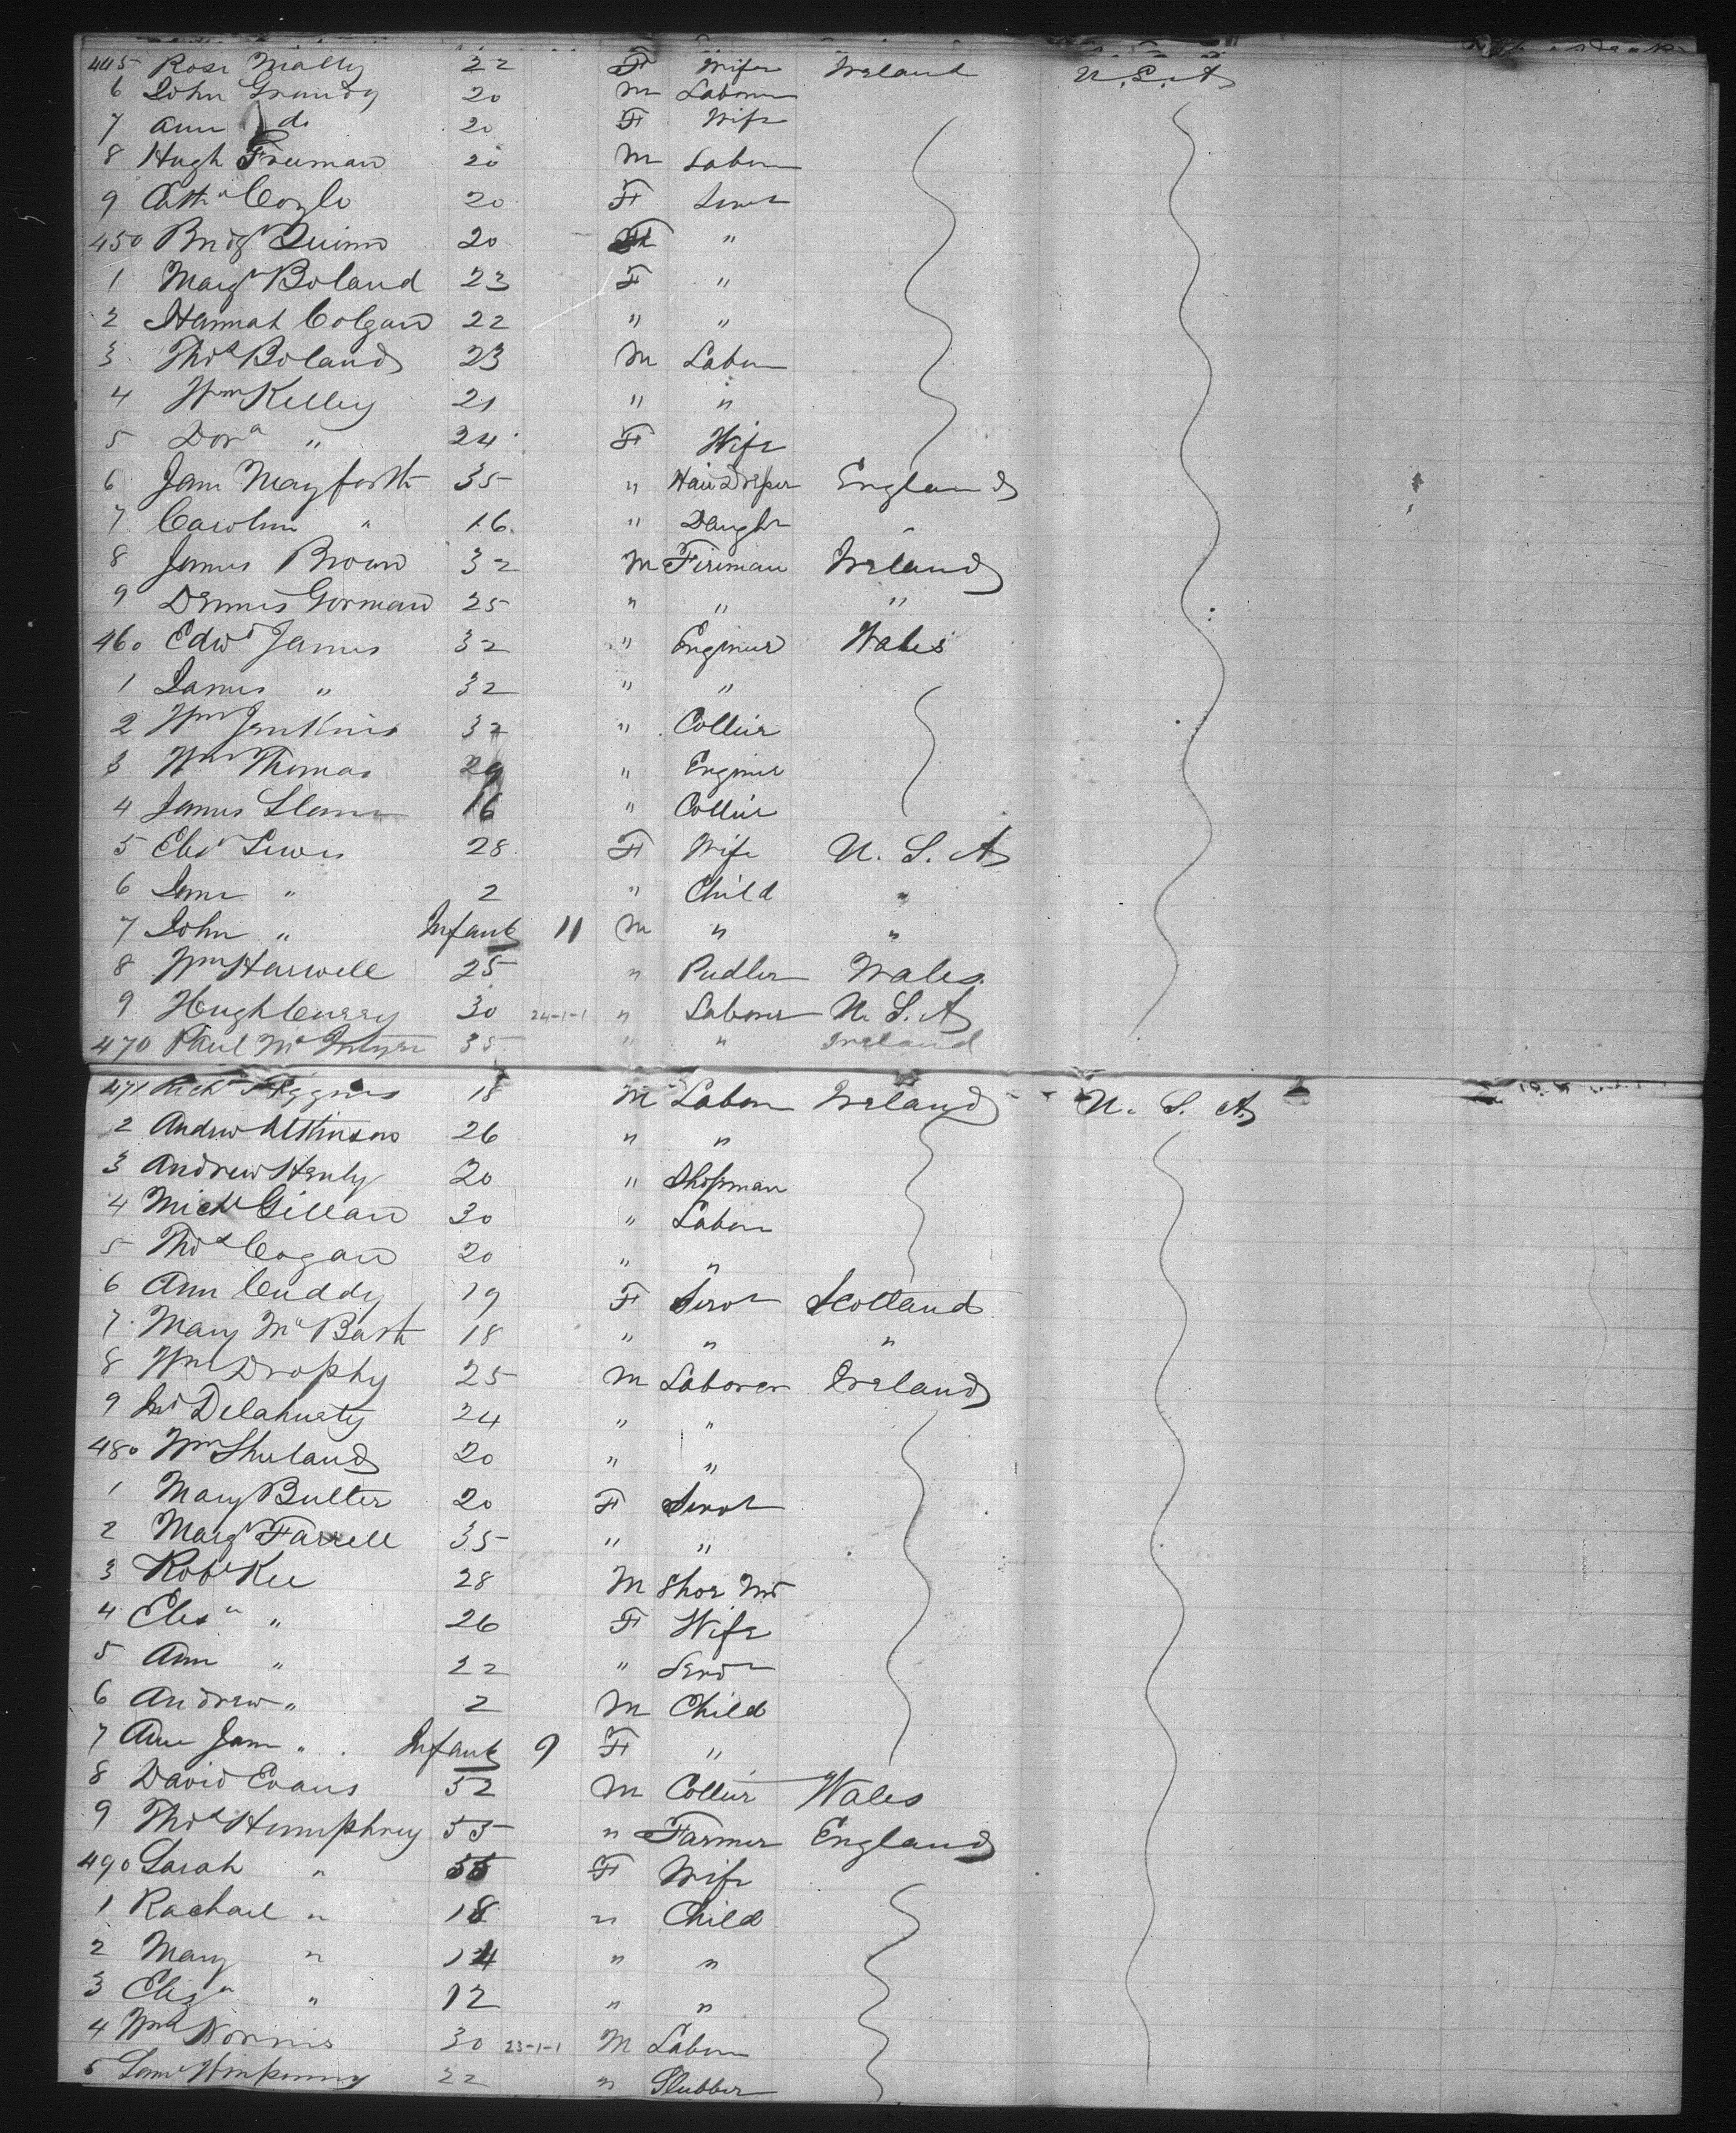 445 Rose Nally 22 F Wife Ireland U.S.A
6 John Grundy 20 M Laborer
7 Ann do 20 F Wife
8 Hugh Freeman 20 M Labor
9 Cath Coyle 20 F Servt
450 Bridgt Quinn 20 F "
1 Margt Boland 23 F "
2 Hannah Colgan 22 " "
3 Thos Boland 23 M Labor
4 Wm Kelley 21 " "
5 Dora " 24 F Wife
6 Jane Mayforth 35 " Hair Dresser England
7 Carolin " 16 " Daughtr "
8 James Brown 32 M Fireman Ireland
9 Dennis Gorman 25 " " "
460 Edwd James 32 " Engineer Wales
1 James " 32 " "
2 Wm Jenkins 32 " Collier
3 Wm Thomas 29 " Engineer
4 James 16 " Collier
5 Eliza Lewis 28 F Wife U.S.A
6 Jane " 2 " Child "
7 John " Infant 11 M " "
8 Wm Harwell 25 " Pudler Wales
9 Hugh Curry 30 24-1-1 " Laborer U.S.A
470 Paul 35 " " Ireland
471 Richd Higgins 18 M Labor Ireland U.S.A
2 Andrew Attinson 26 " "
3 Andrew Henly 20 " Shopman
4 Michl Gillan 30 " Labor
5 Thos Cogan 20 " "
6 Ann Cuddy 19 F Servt Scotland
7 Mary McBath 18 " " "
8 Wm Drophy 25 M Laborer Ireland
9 Jno Delahunty 24 " "
480 Wm Sheland 20 " "
1 Mary Butler 20 F Servt
2 Margt Farrell 35 " "
3 Robt Kee 28 M Shoe Mr
4 Eliza " 26 F Wife
5 Ann " 22 " Servt
6 Andrew " 2 M Child
7 Ann Jane " Infant 9 F "
8 David Evans 52 M Collier Wales
9 Thos Humphrey 55 " Farmer England
490 Sarah " 55 F Wife
1 Rachael " 18 " Child
2 Mary " 14 " "
3 Eliza " 12 " "
4 Wm Norris 30 23-1-1 M Labor
5 22 " Slubber